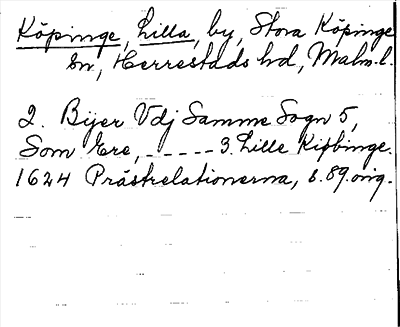 Köpinge, Lilla, by, Stora Köpinge
sn, Herrestads hd, Malm.l.
2. Bÿer Vdj Samme Sogn 5,
Som Ere, ----- 3. Lille Kiøbinge.
1624 Prästrelationerna, s. 89. orig.